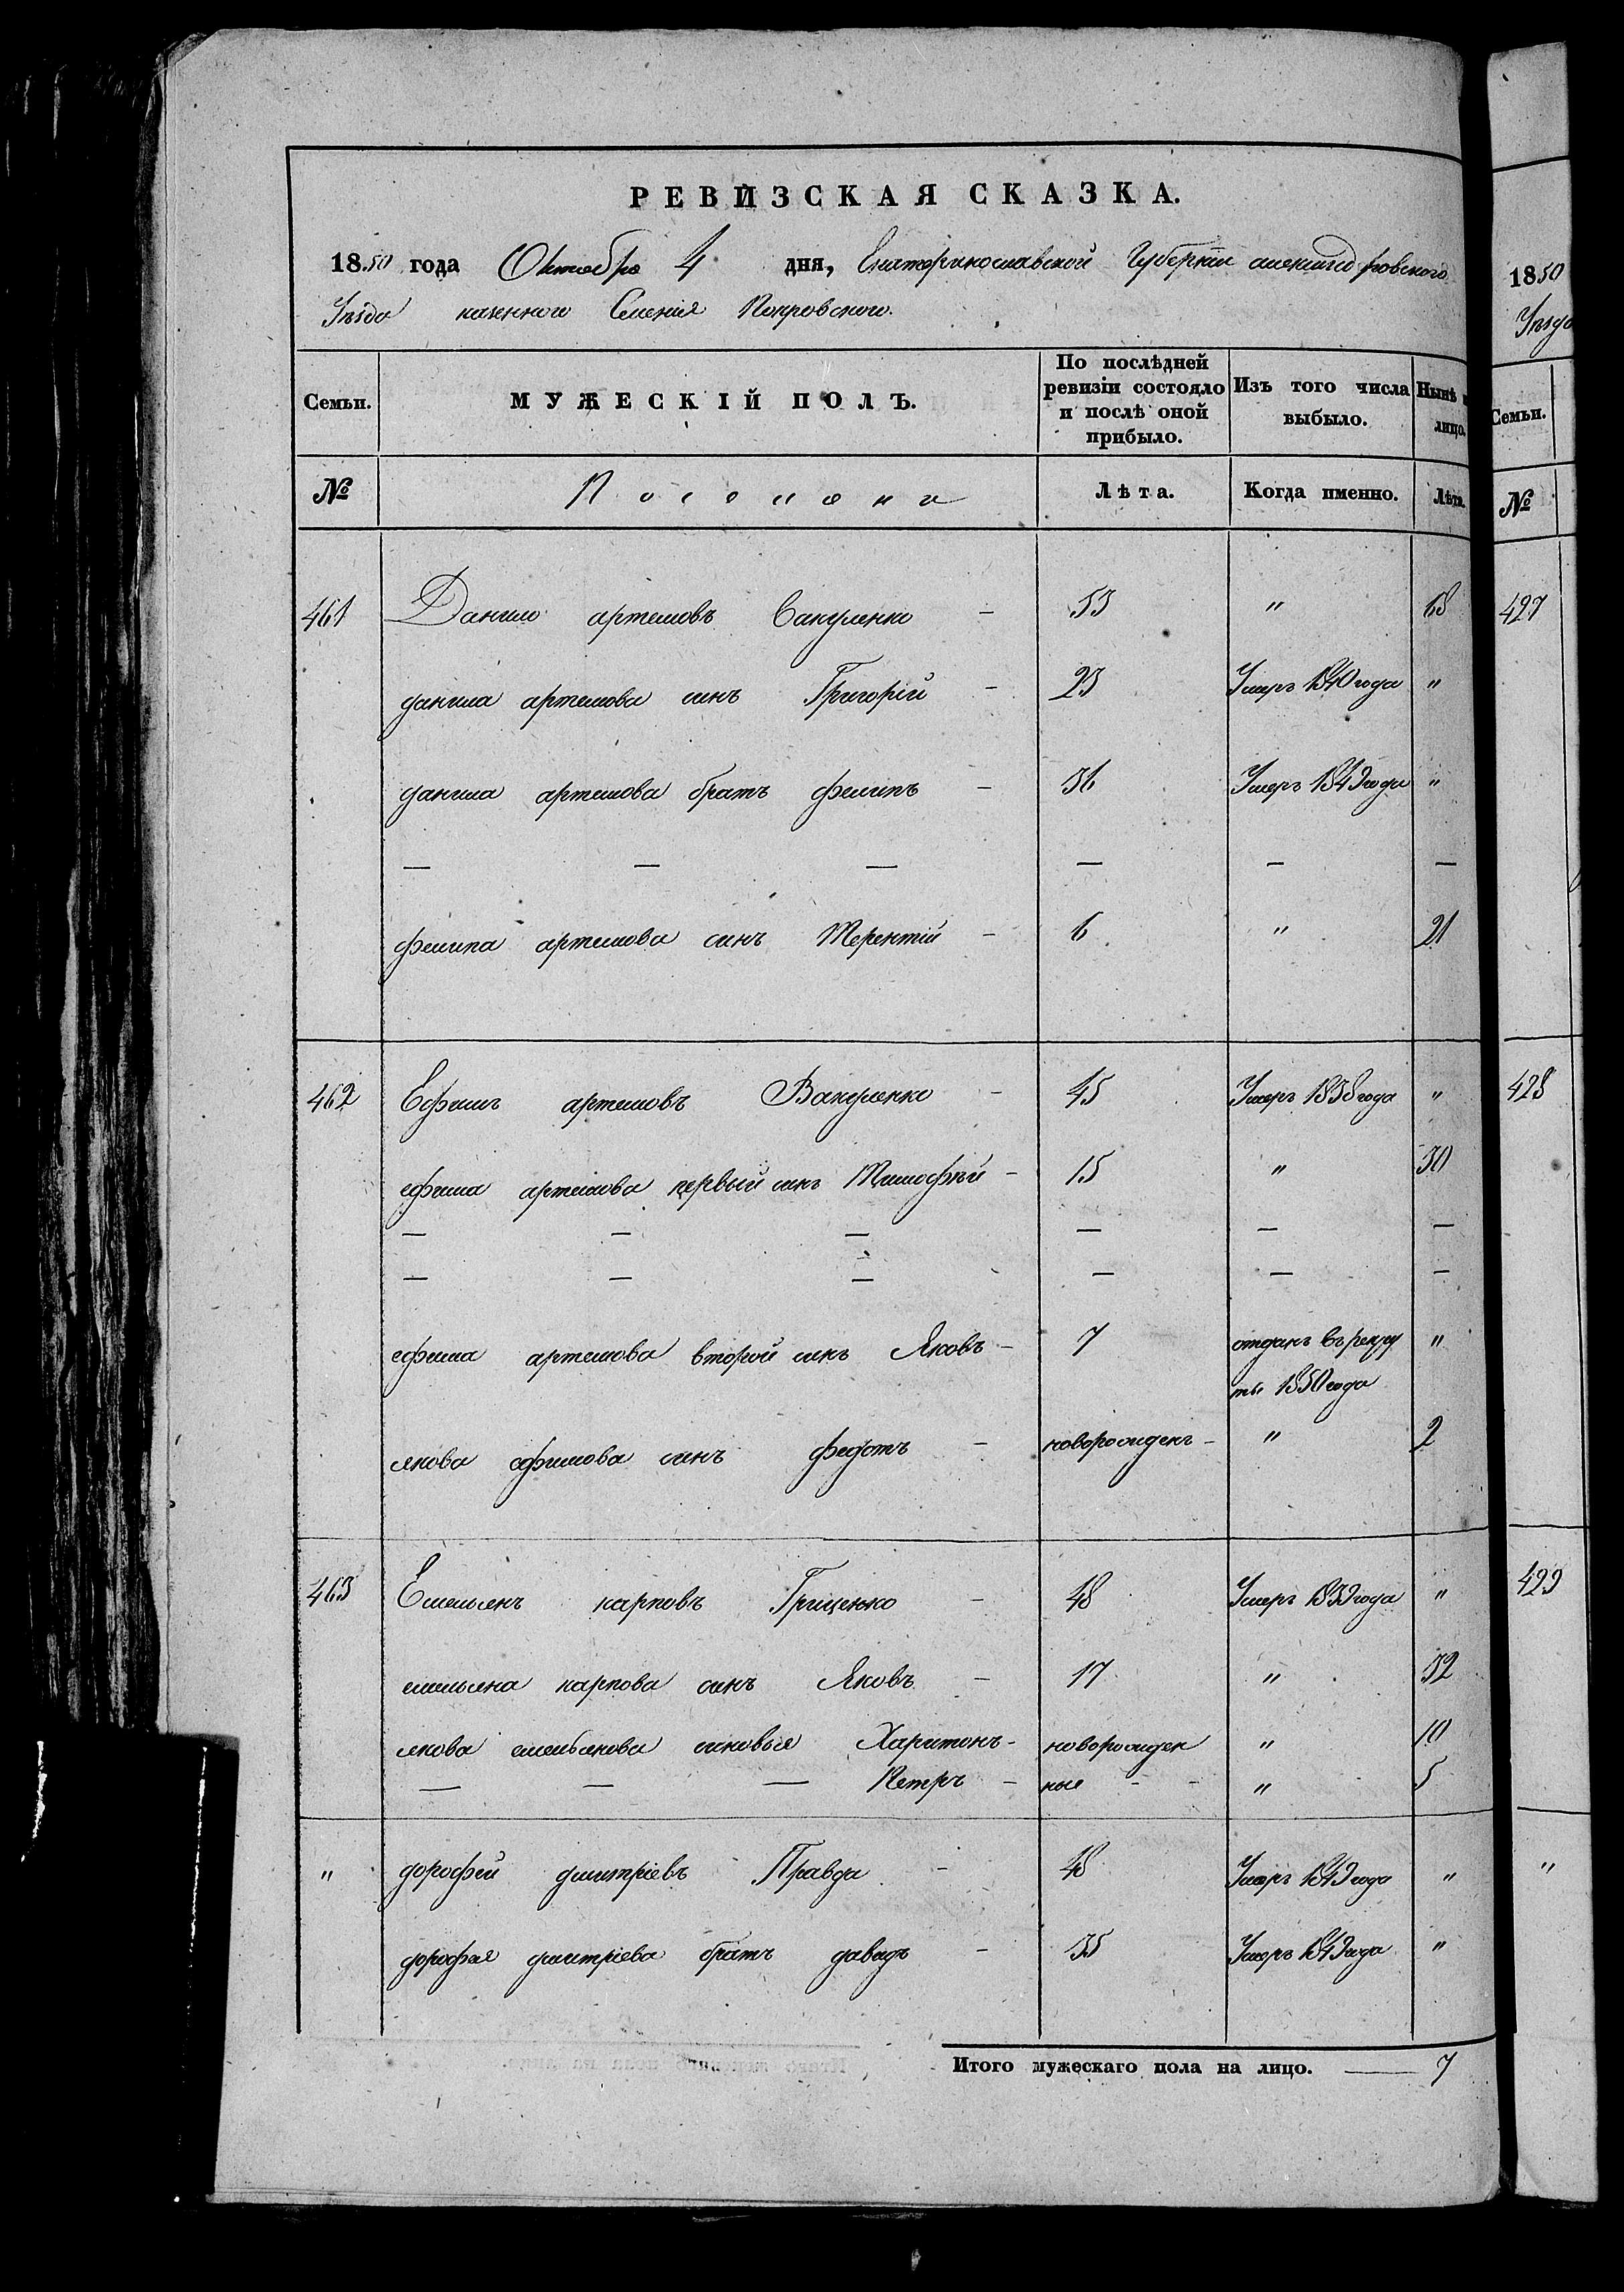 РЕВИЗСКАЯ СКАЗКА.
1850 года Октября 4 дня, Екатеринославской Губернии александровского
Уѣзда казенного Селенія Покровского.
Семьи. МУЖЕСКІЙ ПОЛЪ. По послѣдней ревизіи состояло и послѣ оной прибыло. Изъ того числа выбыло. Нынѣ лицо.
№ Поселяне Лѣта. Когда именно. Лѣта.
461 Данило артемовъ Вакуленко - 53 " 68
данила артемова синъ Григорій - 23 Умеръ 1840 года "
данила артемова братъ филипъ - 36 Умеръ 1849 года "
— — — — — —
филипа артемова синъ Терентій - 6 " 21
462 Ефимъ артемовъ Вакуленко - 45 Умеръ 1838 года "
ефима артемова первый синъ Тимофѣй - 15 " 30
— — — — — —
— — — — — —
ефима артемова второй синъ Яковъ - 7 отданъ въ рекру "
ты 1850 года
якова ефимова синъ федотъ - новорожденъ - " 2
463 Емельянъ карповъ Гриценко - 48 Умеръ 1839 года "
емельяна карпова синъ Яковъ - 17 " 32
якова емельянова синовья Харитонъ - новорожден " 10
— — — Петръ - ные - - " 5
" дорофей дмитріевъ Правда - 48 Умеръ 1849 года "
дорофея дмитріева братъ давидъ - 35 Умеръ 1849 года "
Итого мужескаго пола на лицо. — 7
1850
Уѣзда
Семьи.
№
427
428
429
"